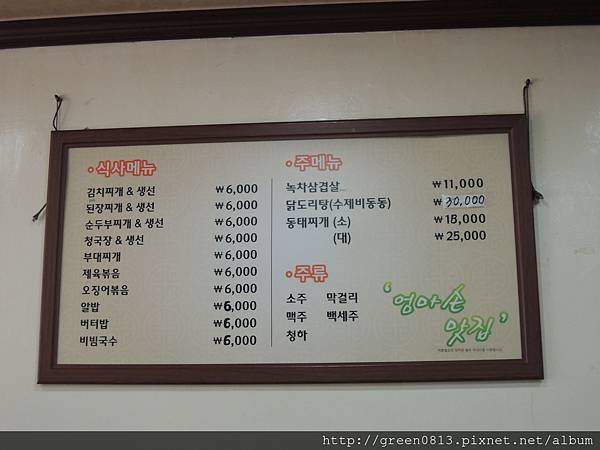 •식사메뉴
김치찌개 & 생선 ₩6,000
된장찌개 & 생선 ₩6,000
순두부찌개 & 생선 ₩6,000
청국장 & 생선 ₩6,000
부대찌개 ₩6,000
제육볶음 ₩6,000
오징어볶음 ₩6,000
알밥 ₩6,000
버터밥 ₩6,000
비빔국수 ₩6,000
•주메뉴
녹차삼겹살... ₩11,000
닭도리탕(수제비동동) ₩30,000
동태찌개 (소) ₩18,000
(대) ₩25,000
•주류
소주 막걸리
맥주 백세주
청하
'엄마손
맛집'
http://green0813.pixnet.net/album